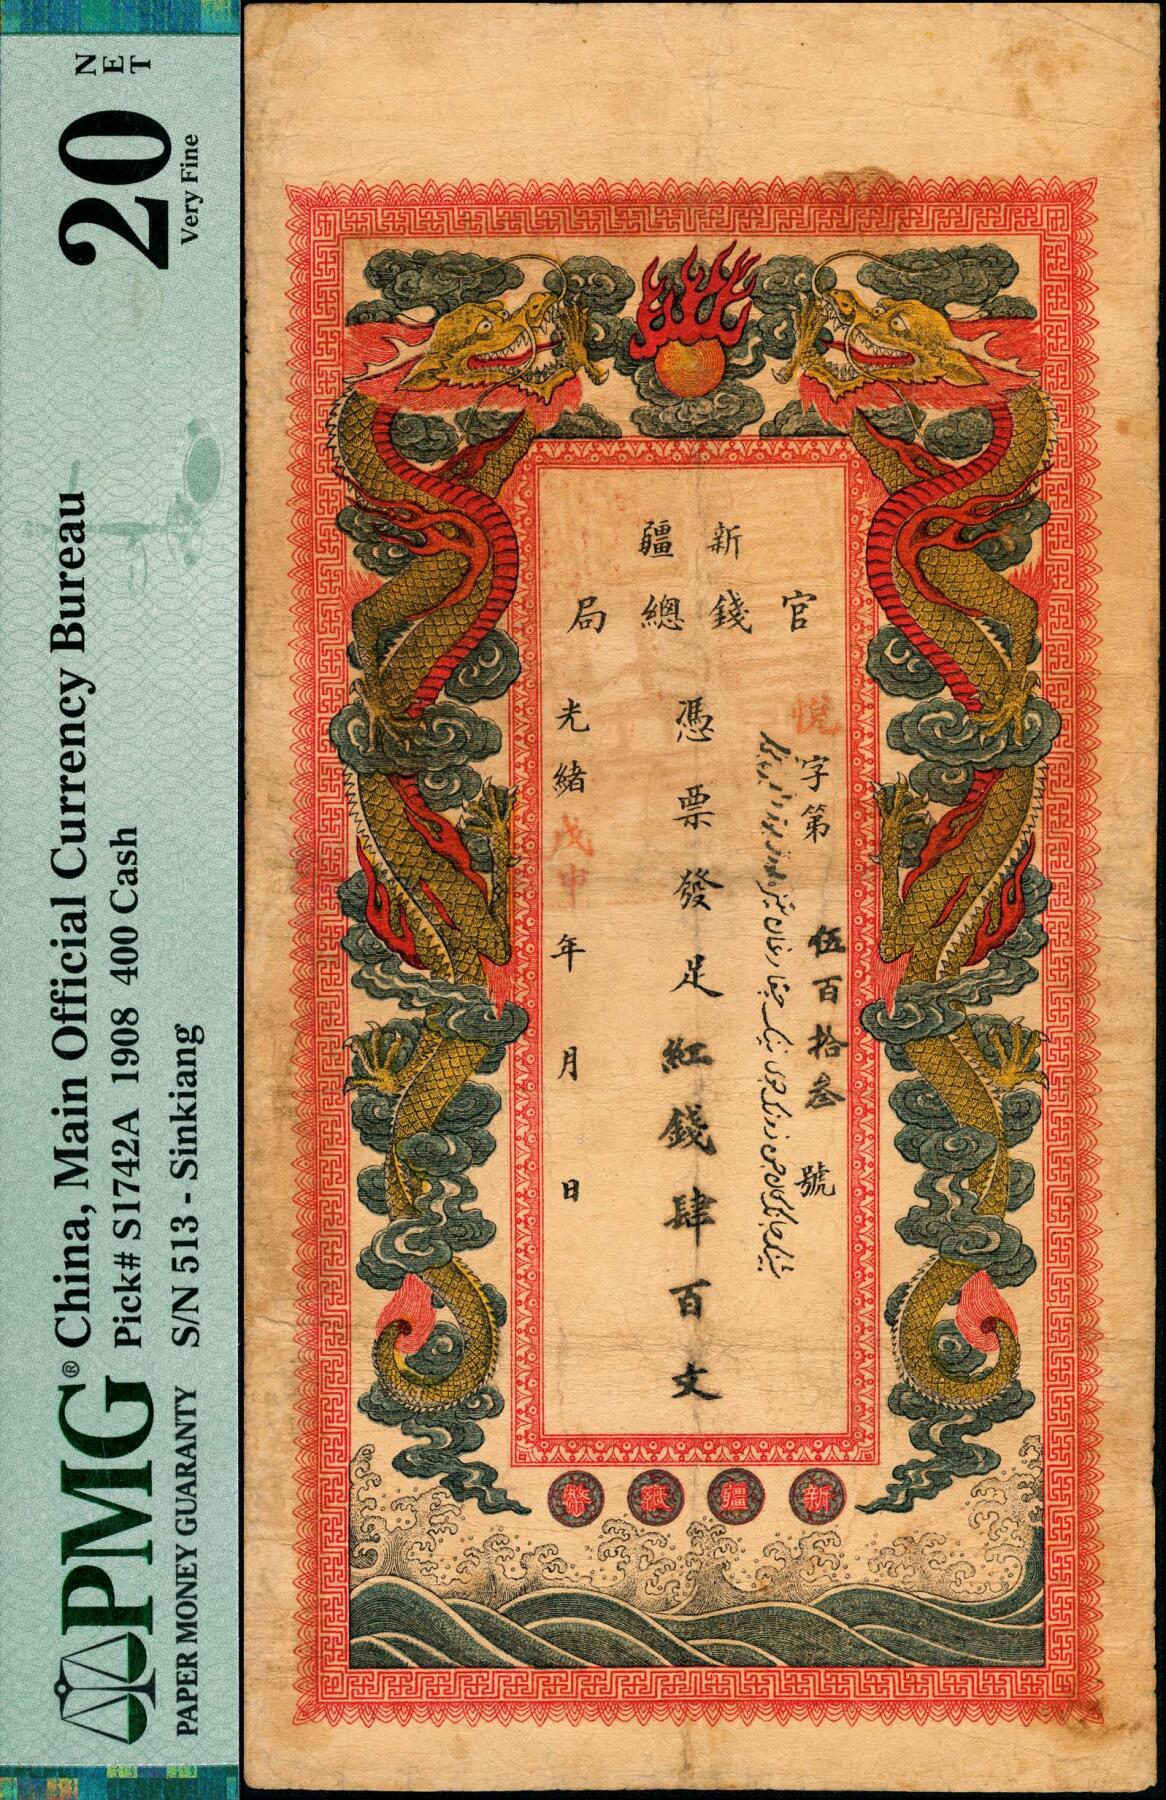 PMG®
PAPER MONEY GUARANTY
China, Main Official Currency Bureau
Pick# S1742A 1908 400 Cash
S/N 513 - Sinkiang
20
NET
Very Fine
新疆
官錢總局
悅字第伍百拾叁號
憑票發足紅錢肆百文
光緒戊申年 月 日
新疆紙幣